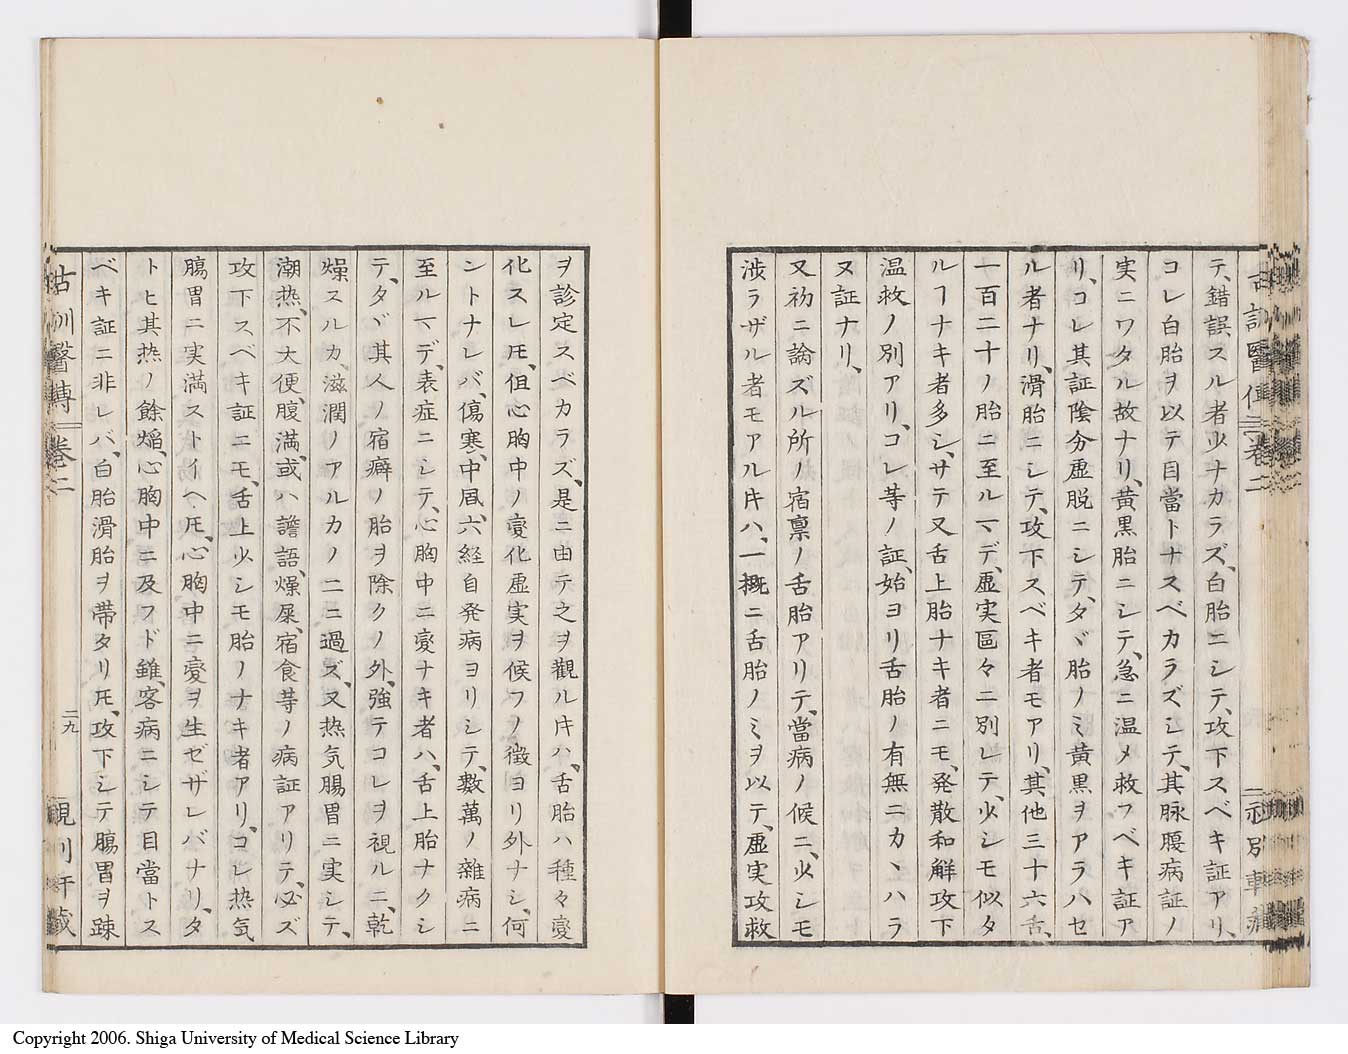 テ、錯誤スル者少ナカラズ、白胎ニシテ、攻下スベキ証アリ、
コレ白胎ヲ以テ目當トナスベカラズシテ、其脉腹病証ノ
実ニワタル故ナリ、黄黒胎ニシテ、急ニ温メ救フベキ証ア
リ、コレ其証陰分虚脱ニシテ、タヾ胎ノミ黄黒ヲアラハセ
ル者ナリ、滑胎ニシテ、攻下スベキ者モアリ、其他三十六舌、
一百二十ノ胎ニ至ルマデ、虚実區々ニ別レテ、少シモ似タ
ルヿナキ者多シ、サテ又舌上胎ナキ者ニモ、発散和解攻下
温救ノ別アリ、コレ等ノ証、始ヨリ舌胎ノ有無ニカヽハラ
ヌ証ナリ、
又初ニ論ズル所ノ宿稟ノ舌胎アリテ、當病ノ候ニ、少シモ
渉ラザル者モアル片ハ、一概ニ舌胎ノミヲ以テ、虚実攻救
ヲ診定スベカラズ、是ニ由テ之ヲ觀ル片ハ、舌胎ハ種々變
化スレ𪜈、但心胸中ノ變化虚実ヲ候フノ徴ヨリ外ナシ、何
ントナレバ、傷寒、中風、六経自発病ヨリシテ、數萬ノ雜病ニ
至ルマデ、表症ニシテ、心胸中ニ變ナキ者ハ、舌上胎ナクシ
テ、タヾ其人ノ宿癖ノ胎ヲ除クノ外、強テコレヲ視ルニ、乾
燥スルカ、滋潤ノアルカノ二ニ過ズ、又熱気腸胃ニ実シテ、
潮熱、不大便、腹満、或ハ譫語、燥屎、宿食等ノ病証アリテ、必ズ
攻下スベキ証ニモ、舌上少シモ胎ノナキ者アリ、コレ熱気
腸胃ニ実満ストイヘ𪜈、心胸中ニ變ヲ生ゼザレバナリ、タ
トヒ其熱ノ餘焔、心胸中ニ及フド雖、客病ニシテ目當トス
ベキ証ニ非レバ、白胎滑胎ヲ帶タリ𪜈、攻下シテ腸胃ヲ疎
古訓醫傳 卷二
二九